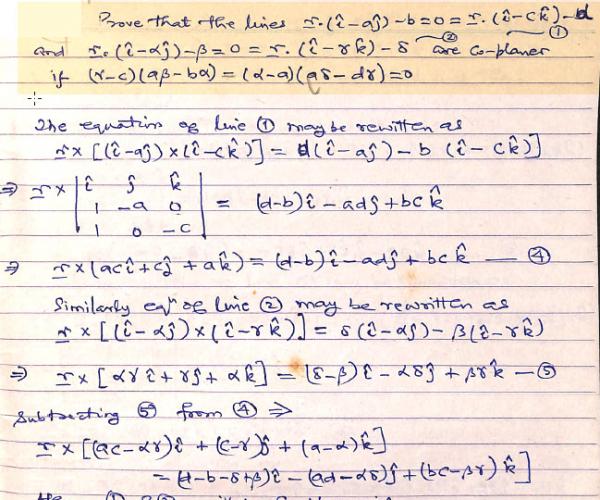 Prove that the lines r.(î-aĵ)-b=0=r.(î-ck̂)-d ①
and r.(î-αĵ)-β=0=r.(î-γk̂)-δ ② are co-planer
if (γ-c)(aβ-bα)=(α-a)(cδ-dγ)=0
The equation of line ① may be rewritten as
r×[(î-aĵ)×(î-ck̂)]=d(î-aĵ)-b(î-ck̂)]
⇒ r× | î ĵ k̂ |
| 1 -a 0 | = (d-b)î-adĵ+bck̂
| 1 0 -c |
⇒ r×(acî+cĵ+ak̂)=(d-b)î-adĵ+bck̂ — ④
Similarly eqn of line ② may be rewritten as
r×[(î-αĵ)×(î-γk̂)]=δ(î-αĵ)-β(î-γk̂)
⇒ r×[αγî+γĵ+αk̂]=(δ-β)î-αδĵ+βγk̂ — ⑤
Subtracting ⑤ from ④ ⇒
r×[(ac-αγ)î+(c-γ)ĵ+(a-α)k̂]
=(d-b-δ+β)î-(ad-αδ)ĵ+(bc-βγ)k̂]